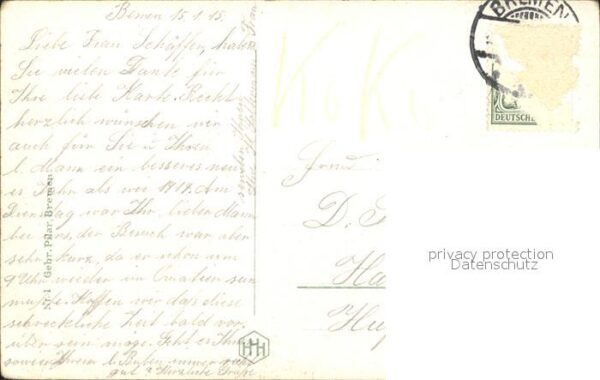 Bremen 15.1.15.
Liebe Frau Schäffer, haben
Sie vielen Dank für
Ihre liebe Karte. Recht
herzlich wünschen wir
auch für Sie u Ihren
l. Mann ein besseres neu
es Jahr als wie 1914. Am
Dienstag war Ihr lieber Mann
bei uns, der Besuch war aber
sehr kurz, da er schon um
9 Uhr wieder im Quartier sein
mußte. Hoffen wir das diese
schreckliche Zeit bald vor
über sein möge. Geht es Ihnen
sowie Ihrem l. Buben immer
gut? Herzliche Grüße
senden Ihnen
Frau
Nr. 1 Gebr. Pilar, Bremen
HH
KuK
BREMEN
DEUTSCH
Frau
D.
Ha
privacy protection
Datenschutz